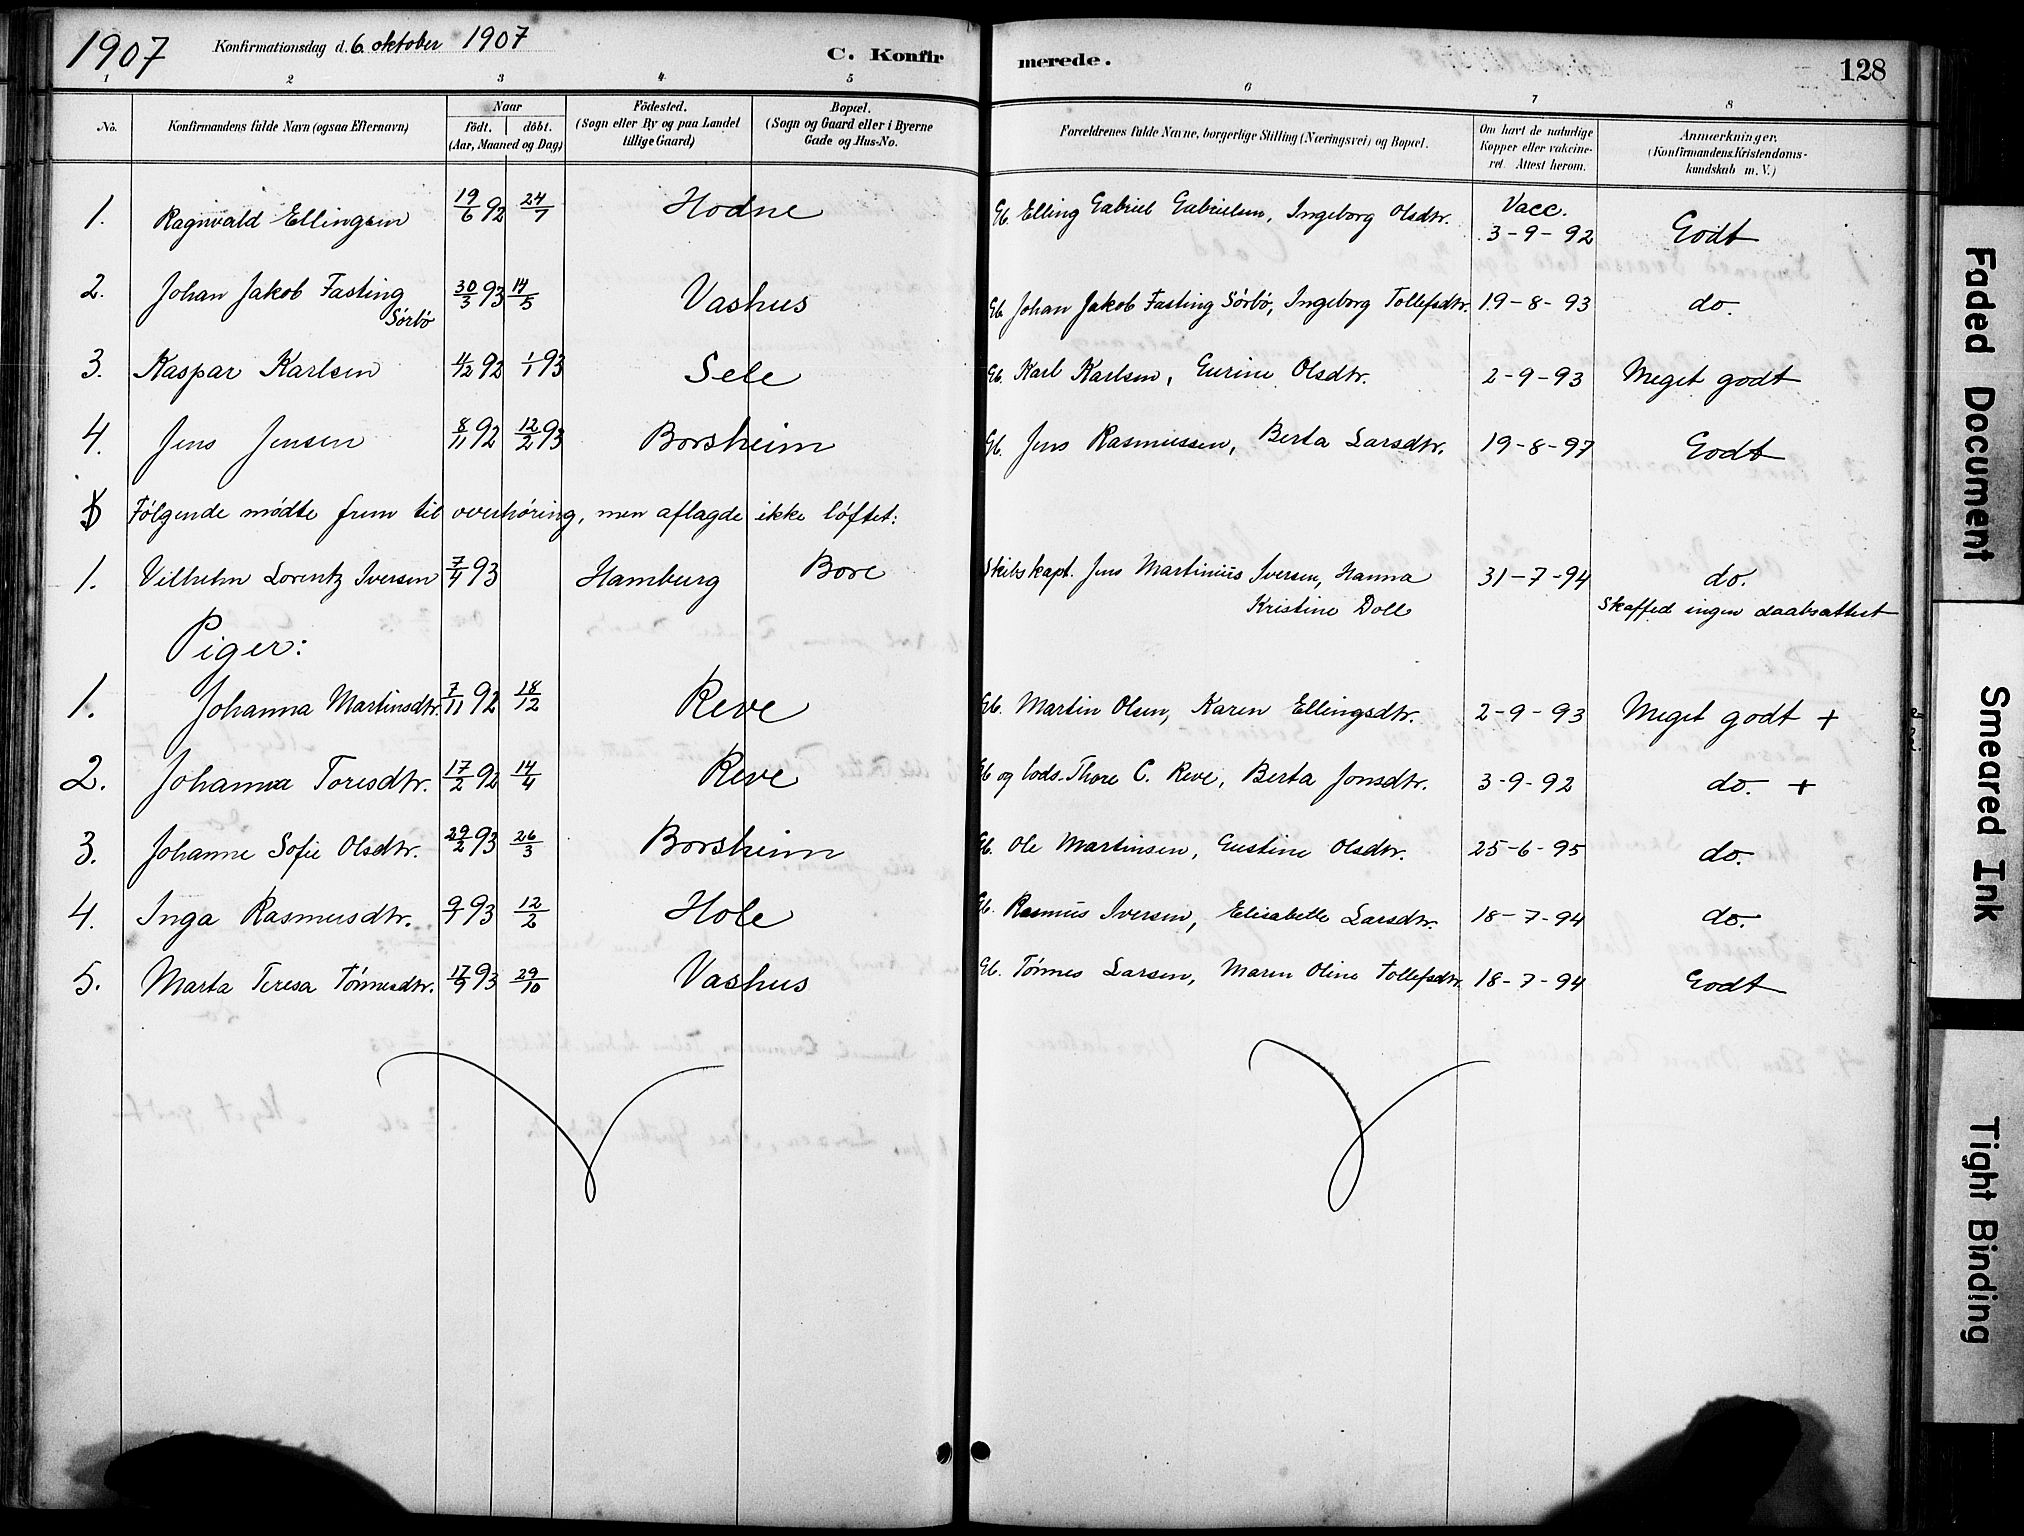 1907 Konfirmationsdag d. 6 oktober 1907 C. Konfirmerede. 128
1 2 3 4 5 6 7 8
No. Konfirmandens fulde Navn (ogsaa Efternavn) Naar födt. döbt. (Aar, Maaned og Dag) Födested. (Sogn eller By og paa Landet tillige Gaard) Bopæl. (Sogn og Gaard eller i Byerne Gade og Hus-No. Forældrenes fulde Navne, borgerlige Stilling (Næringsvei) og Bopæl. Om havt de naturlige Kopper eller vakcineret. Attest herom. Anmærkninger. (Konfirmandens Kristendomskundskab m. V.)
1. Ragnvald Ellingsen 19/6 92 24/7 Hodne Gb. Elling Gabriel Gabrielsen, Ingeborg Olsdtr. Vacc. 3-9-92 Godt
2. Johan Jakob Fasting Sörbö 30/3 93 14/5 Vashus Gb. Johan Jakob Fasting Sörbö, Ingeborg Tollefsdtr. 19-8-93 do.
3. Kaspar Karlsen 4/12 92 1/1 93 Sele Gb. Karl Karlsen, Gurine Olsdtr. 2-9-93 Meget godt
4. Jens Jensen 8/11 92 12/2 93 Borsheim Gb. Jens Rasmussen, Berta Larsdtr. 19-8-97 Godt
Følgende mödte frem til overhöring, men aflagde ikke löftet:
1. Vilhelm Lorentz Iversen 7/4 93 Hamburg Bore Skibskapt. Jens Martinius Iversen, Hanna Kristine Doll 31-7-94 do.
Skaffed ingen daabsattest
Piger:
1. Johanna Martinsdtr. 7/11 92 18/12 Reve Gb. Martin Olsen, Karen Ellingsdtr. 2-9-93 Meget godt +
2. Johanna Toresdtr. 17/2 92 14/4 Reve Gb og lods. Thore C. Reve, Berta Jonsdtr. 3-9-92 do. +
3. Johanne Sofie Olsdtr. 29/2 93 26/3 Borsheim Gb. Ole Martinsen, Gustine Olsdtr. 25-6-95 do.
4. Inga Rasmusdtr. 9/1 93 12/2 Hole Gb. Rasmus Iversen, Elisabeth Larsdtr. 18-7-94 do.
5. Marta Teresa Tönnesdtr. 17/9 93 29/10 Vashus Gb. Tönnes Larsen, Maren Oline Tollefsdtr. 18-7-94 Godt
Faded Document
Smeared Ink
Tight Binding